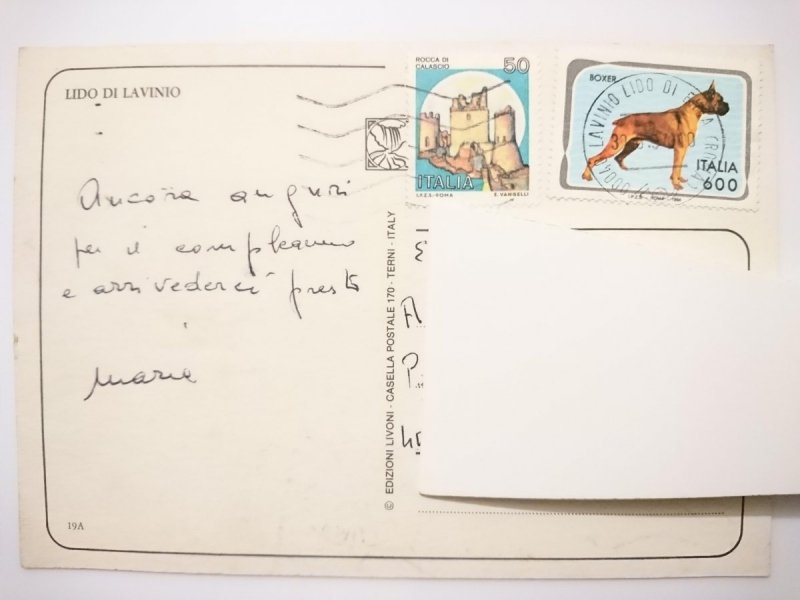 LIDO DI LAVINIO
ROCCA DI
CALASCIO
50
ITALIA
I.P.Z.S.-ROMA E. VANGELLI
BOXER
ITALIA
600
I.P.Z.S. - ROMA
LAVINIO LIDO DI
Ancora auguri
per il compleanno
e arrivederci presto
Maria
© EDIZIONI LIVONI - CASELLA POSTALE 170 - TERNI - ITALY
19A